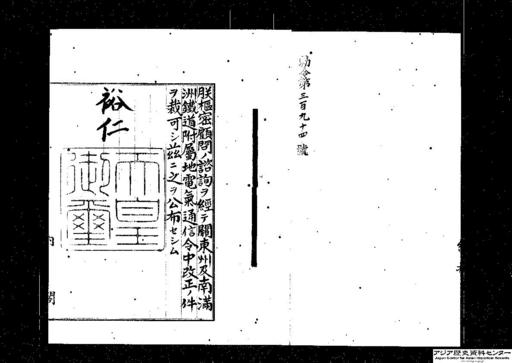 勅令第三百九十四號
朕樞密顧問ノ諮詢ヲ經テ關東州及南滿
洲鐵道附屬地電氣通信令中改正ノ件
ヲ裁可シ茲ニ之ヲ公布セシム
裕仁
天皇
御璽
アジア歴史資料センター
Japan Center for Asian Historical Records